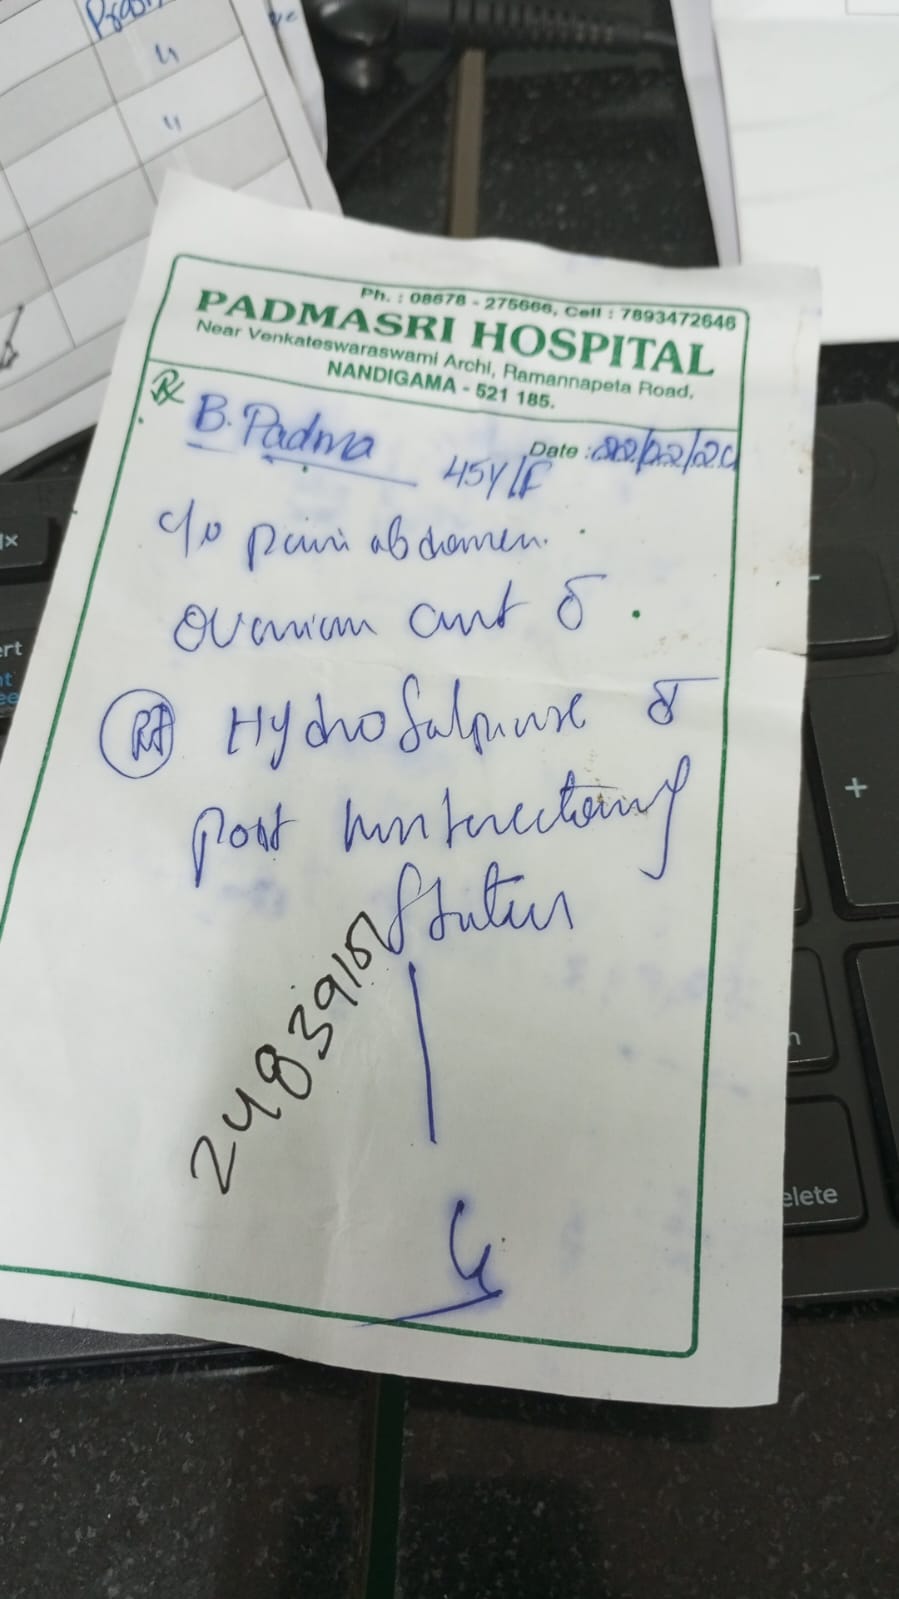 Ph. : 08678 - 275666, Cell : 7893472646
PADMASRI HOSPITAL
Near Venkateswaraswami Archi, Ramannapeta Road,
NANDIGAMA - 521 185.
Rx
B. Padma
Date :
45Y/F
c/o pain abdomen.
ovarian c̄
Rt Hydrosalpinx c̄
post hysterectomy
status
24839101
elete